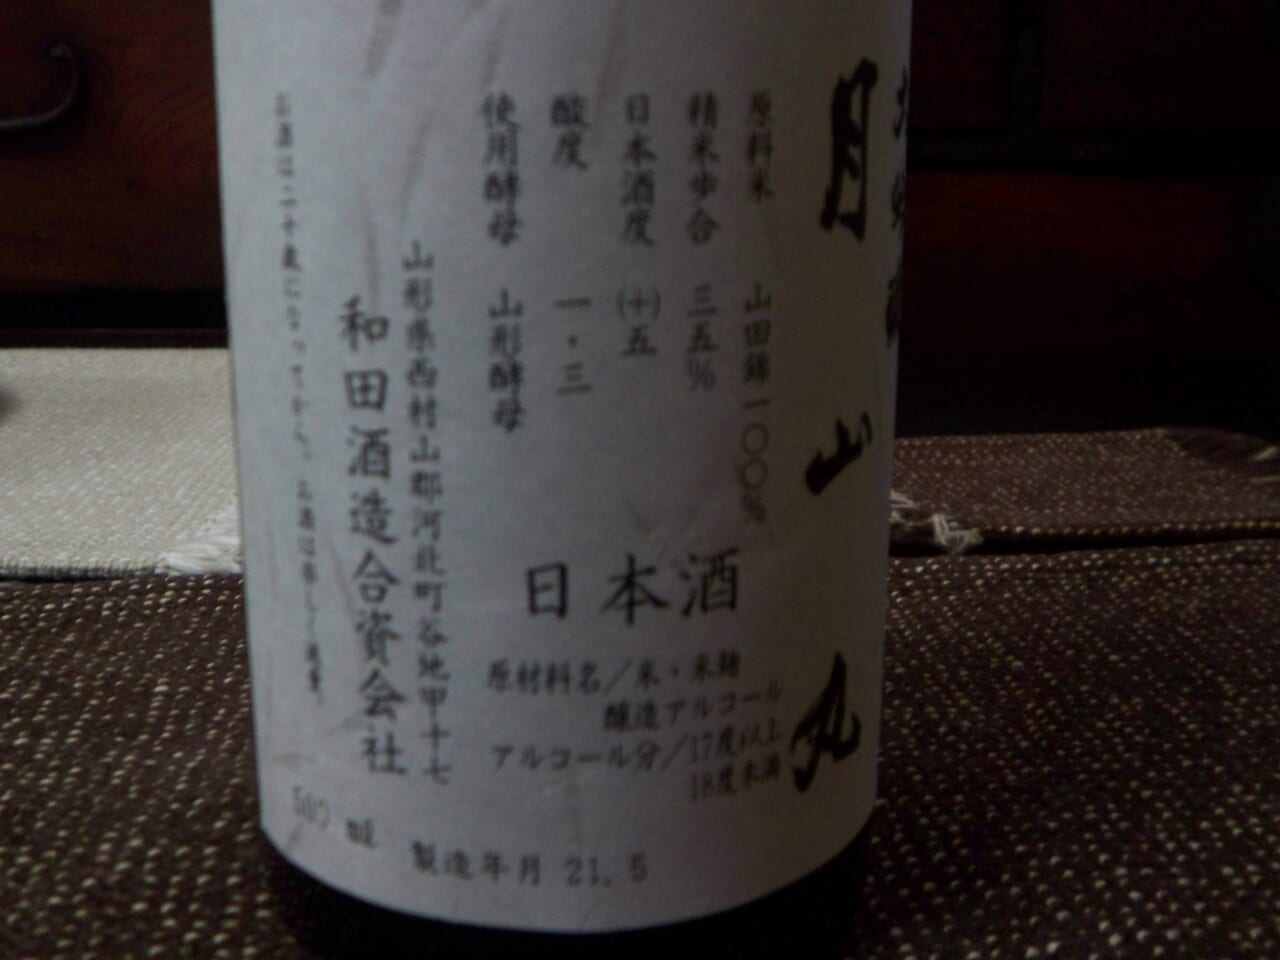 月山丸
原料米 山田錦一〇〇%
精米歩合 三五%
日本酒度 (十)五
酸度 一・三
使用酵母 山形酵母
日本酒
原材料名/米・米麹
醸造アルコール
アルコール分/17度以上
18度未満
山形県西村山郡河北町谷地甲十七
和田酒造合資会社
お酒は二十歳になってから。お酒は
500 ml
製造年月 21.5